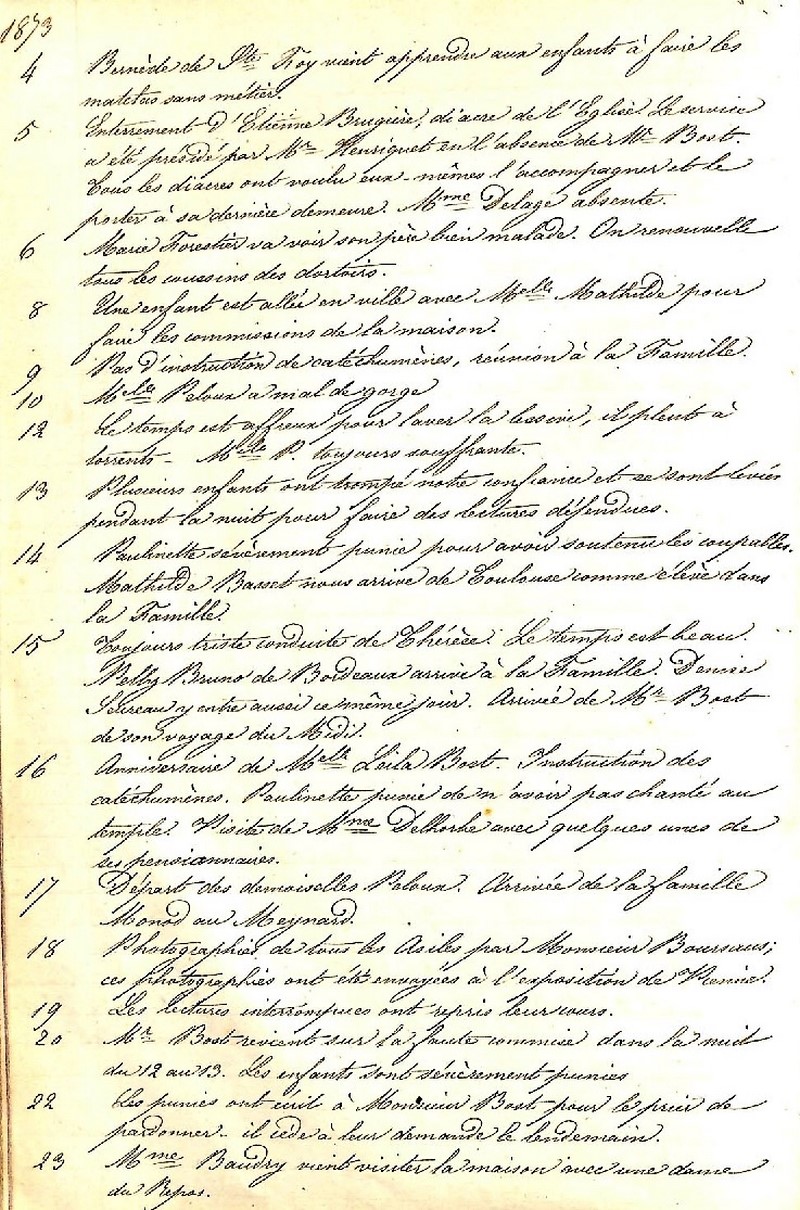 1873
4 Bernède de Ste Foy vient apprendre aux enfants à faire les
matelas sans métier.
5 Enterrement d'Etienne Brugière, diacre de l'Eglise. Le service
a été présidé par Mr Henriquet en l'absence de Mr Bost.
Tous les diacres ont voulu eux-mêmes l'accompagner et le
porter à sa dernière demeure. Mme Delage absente.
6 Marie Forestier va voir son père bien malade. On renouvelle
tous les coussins des dortoirs.
8 Une enfant est allée en ville avec Melle Mathilde pour
faire les commissions de la maison.
9 Pas d'instruction de catéchumènes, réunion à la Famille.
10 Melle Peloux a mal de gorge
12 Le temps est affreux pour laver la lessive, il pleut à
torrents - Melle P. toujours souffrante.
13 Plusieurs enfants ont trompé notre confiance et se sont levées
pendant la nuit pour faire des lectures défendues.
14 Paulinette sévèrement punie pour avoir soutenu les coupables.
Mathilde Basset nous arrive de Toulouse comme élève dans
la Famille.
15 Toujours triste conduite de Thérèse. Le temps est beau.
Nelly Bruno de Bordeaux arrive à la Famille. Denise
Seureau y entre aussi ce même jour. Arrivée de Mr Bost
de son voyage du Midi.
16 Anniversaire de Melle Leïla Bost. Instruction des
catéchumènes. Paulinette punie de n'avoir pas chanté au
temple. Visite de Mme Delhorbe avec quelques unes de
ses pensionnaires.
17 Départ des demoiselles Peloux. Arrivée de la famille
Monod au Meynard.
18 Photographies de tous les Asiles par Monsieur Boursaus;
ces photographies ont été envoyées à l'exposition de Vienne.
19 Les lectures interrompues ont repris leur cours.
20 Mr Bost revient sur la faute commise dans la nuit
du 12 au 13. Les enfants sont sévèrement punies
22 Les punies ont écrit à Monsieur Bost pour le prier de
pardonner - il cède à leur demande le lendemain.
23 Mme Baudry vient visiter la maison avec une dame
du Repos.